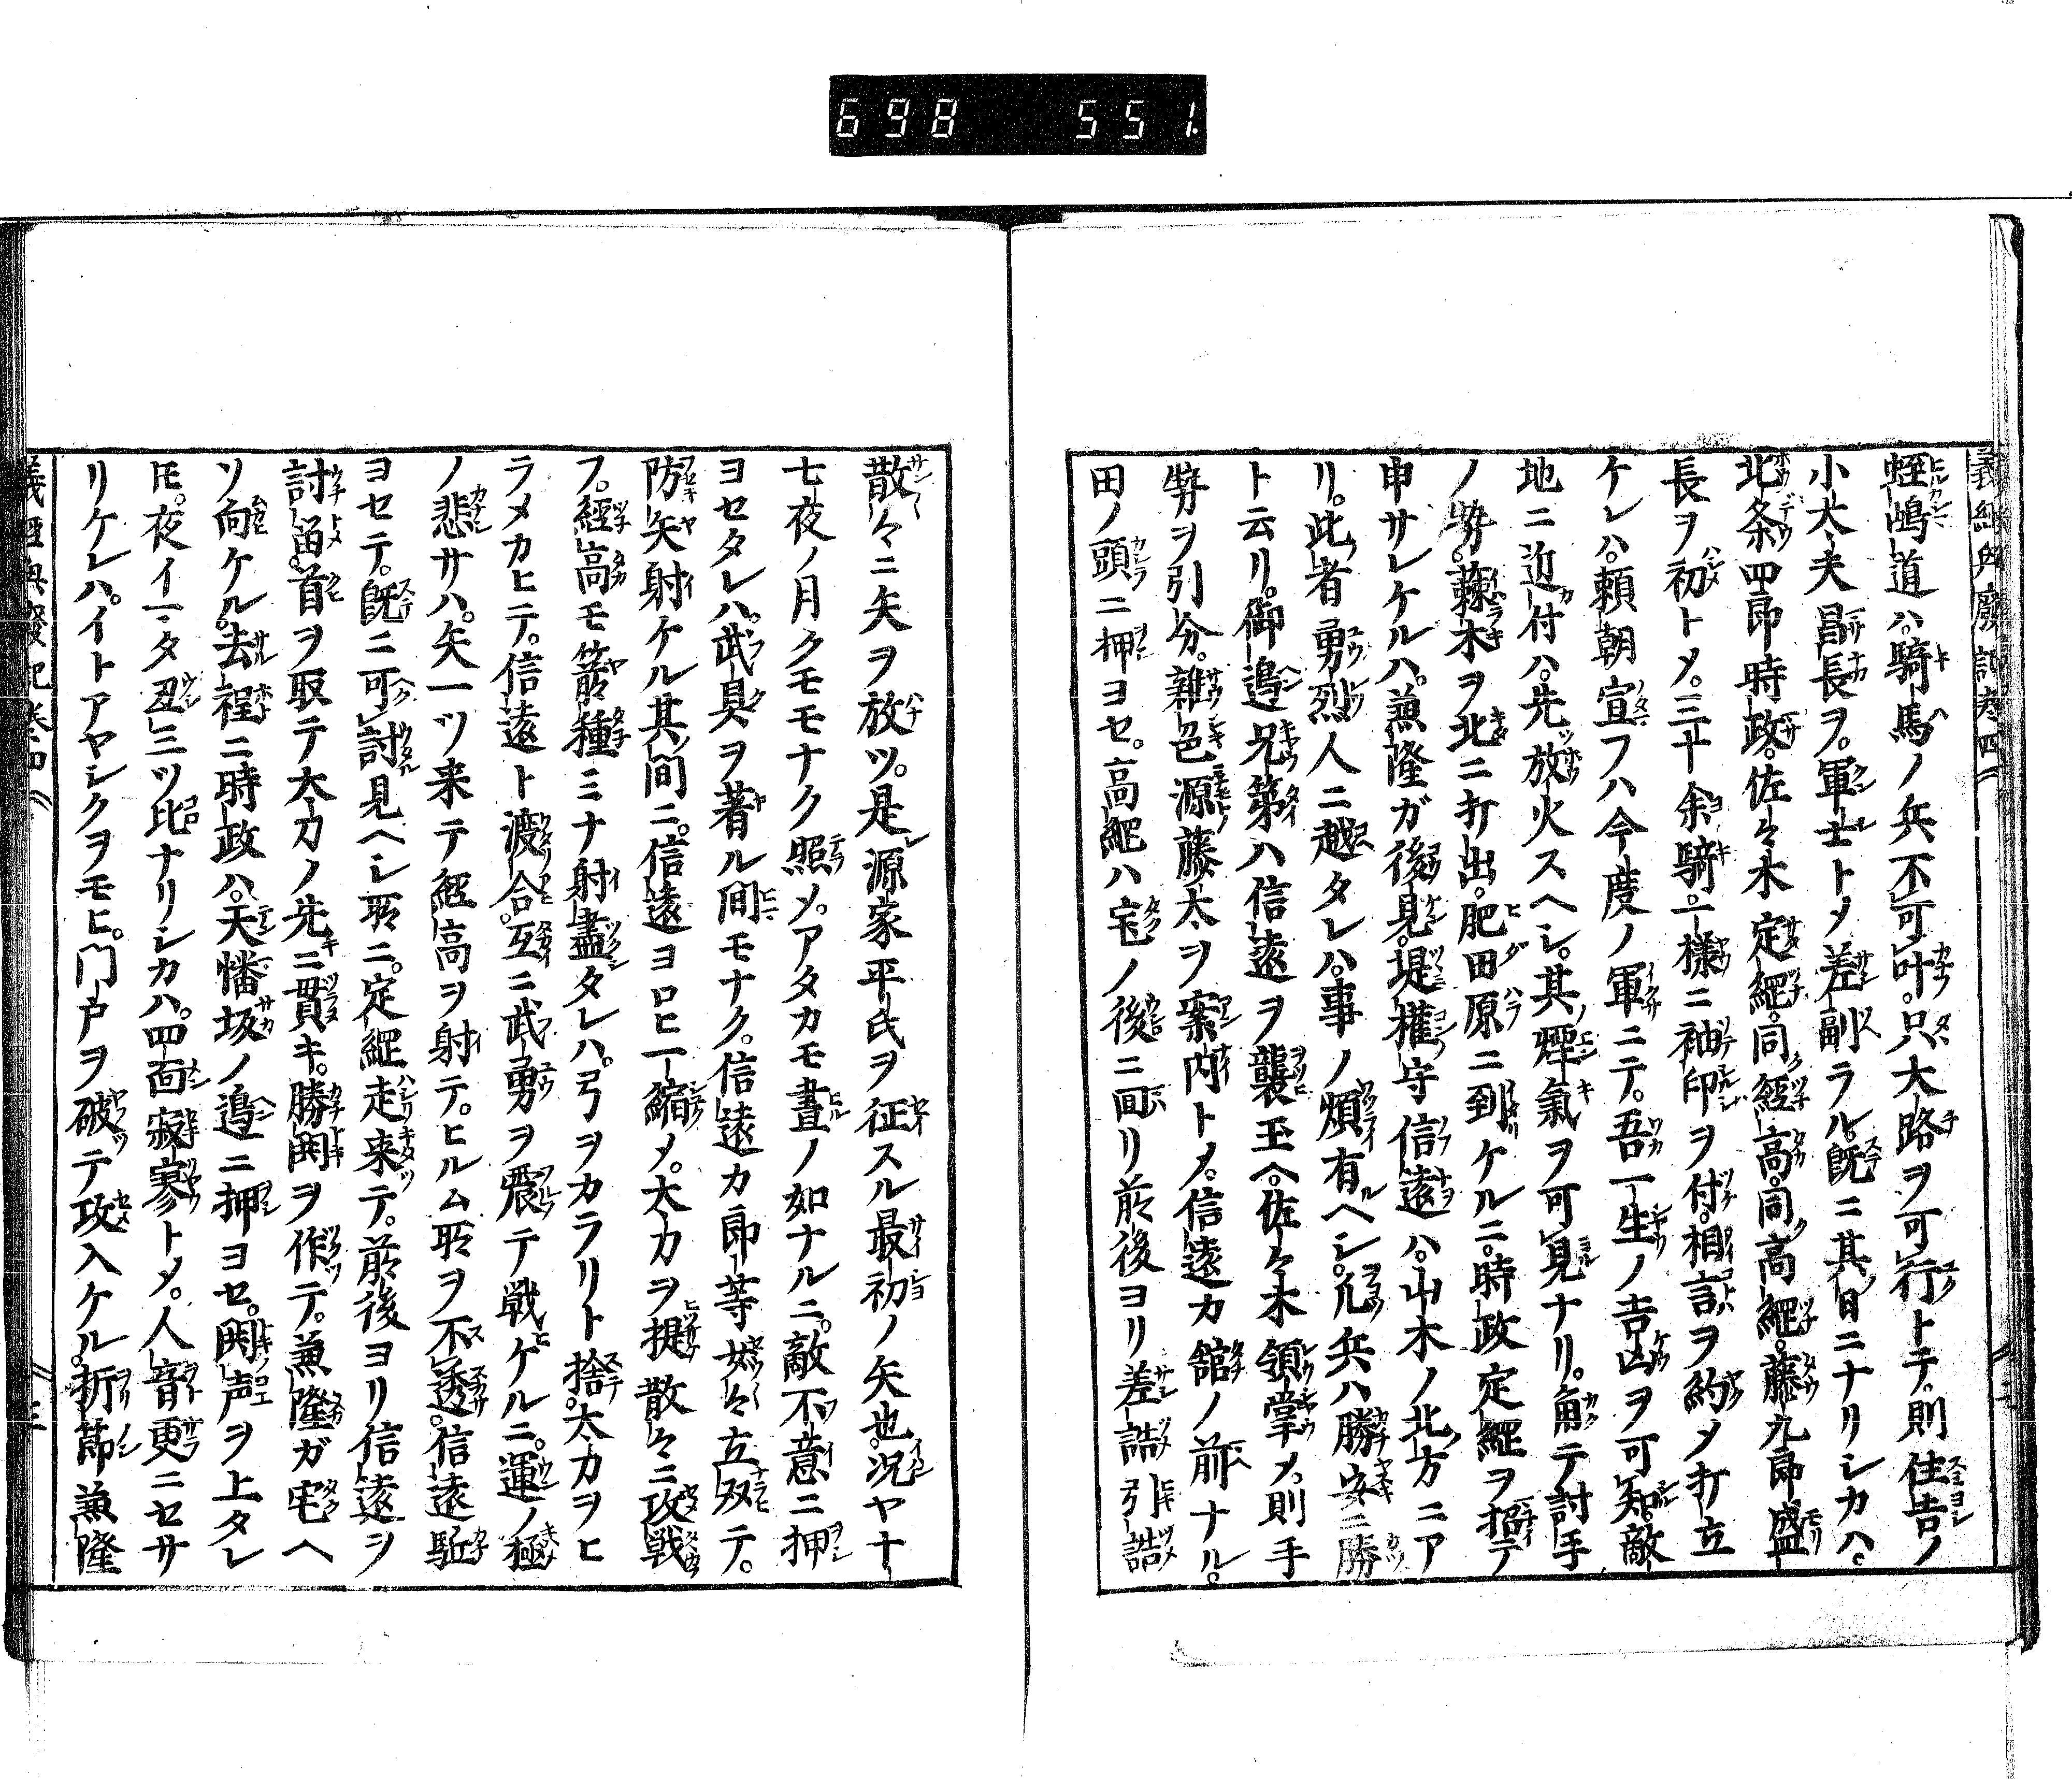 698 551
義経興廃記巻四
蛭嶋道ハ。騎馬ノ兵不可叶。只大路ヲ可行トテ。則住吉ノ
小大夫昌長ヲ。軍士トメ差副ラル。既ニ其日ニナリシカハ。
北条四郎時政。佐々木定綱。同經高。同高綱。藤九郎盛
長ヲ初トメ。三十余騎。一様ニ袖印ヲ付。相言ヲ約メ打立
ケレハ。頼朝宣フハ今度ノ軍ニテ。吾一生ノ吉凶ヲ可知。敵
地ニ近付ハ。先放火スヘシ。其煙氣ヲ可見ナリ。角テ討手
ノ勢。蕀木ヲ北ニ打出。肥田原ニ到ケルニ。時政定綱ヲ招テ
申サレケルハ。兼隆ガ後見。堤權守信遠ハ。山木ノ北方ニア
リ。此者勇烈人ニ越タレハ。事ノ煩有ヘシ。凡兵ハ勝安ニ勝
ト云リ。御邉兄第ハ信遠ヲ襲玉ヘ。佐々木領掌メ。則手
勢ヲ引分。雜色源藤太ヲ案内トメ。信遠カ舘ノ前ナル。
田ノ頭ニ押ヨセ。高綱ハ宅ノ後ニ囬リ前後ヨリ差詰引詰
散々ニ矢ヲ放ツ。是源家平氏ヲ征スル最初ノ矢也。況ヤ十
七夜ノ月クモモナク照メ。アタカモ晝ノ如ナルニ。敵不意ニ押
ヨセタレハ。武具ヲ著ル間モナク。信遠カ郎等。娓々立双テ。
防矢射ケル其間ニ。信遠ヨロヒ一縮メ。太カヲ提散々ニ攻戦
フ。經高モ箭種ミナ射盡タレハ。弓ヲカラリト捨。太カヲヒ
ラメカヒテ。信遠ト渡合。互ニ武勇ヲ震テ戦ケルニ。運ノ極
ノ悲サハ。矢一ツ来テ經高ヲ射テ。ヒルム所ヲ不透。信遠駈
ヨセテ。既ニ可討見ヘシ所ニ。定綱走来テ。前後ヨリ信遠ヲ
討畄。首ヲ取テ太カノ先ニ貫キ。勝閧ヲ作テ。兼隆ガ宅ヘ
ソ向ケル。去程ニ時政ハ。天幡坂ノ邉ニ押ヨセ。閧声ヲ上タレ
𪜈。夜イマタ丑三ツ比ナリシカハ。四面寂寥トメ。人音更ニセサ
リケレハ。イトアヤシクヲモヒ。門戸ヲ破テ攻入ケル。折節兼隆
義經興廢記巻四
三